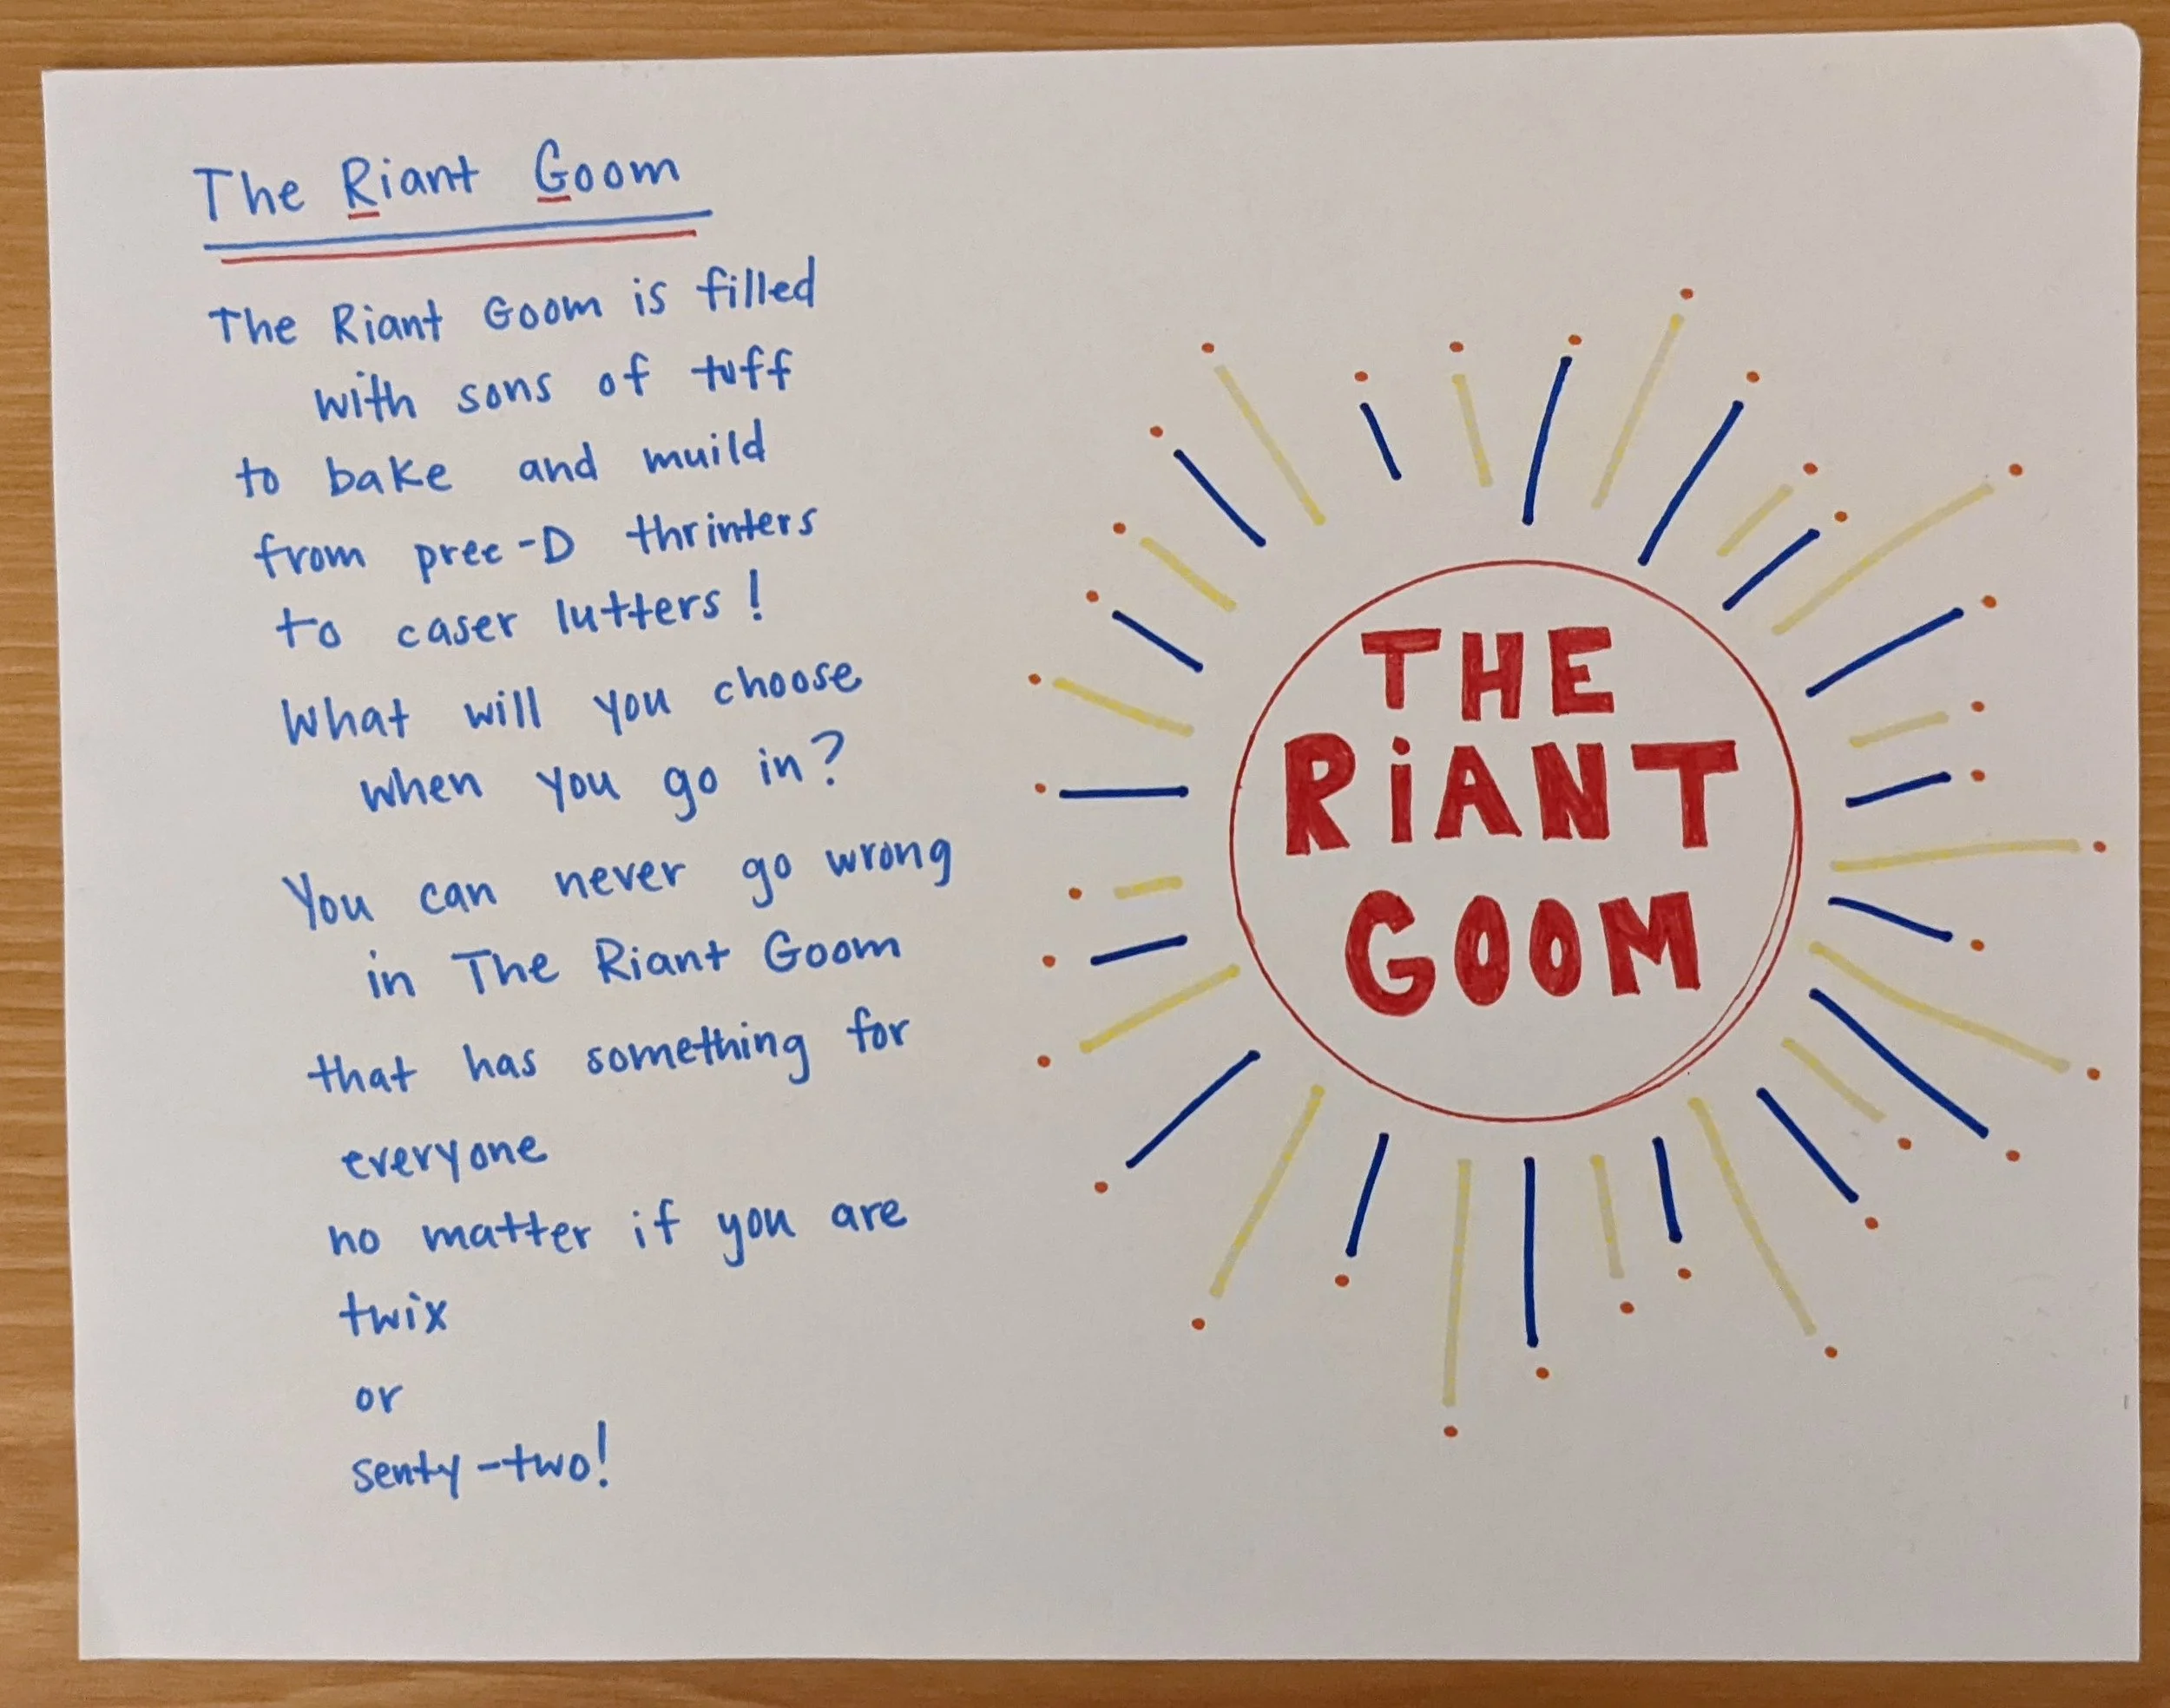 The Riant Goom
The Riant Goom is filled
with sons of tuff
to bake and muild
from pree-D thrinters
to caser lutters!
What will you choose
when you go in?
You can never go wrong
in The Riant Goom
that has something for
everyone
no matter if you are
twix
or
senty-two!
THE
RiANT
GOOM